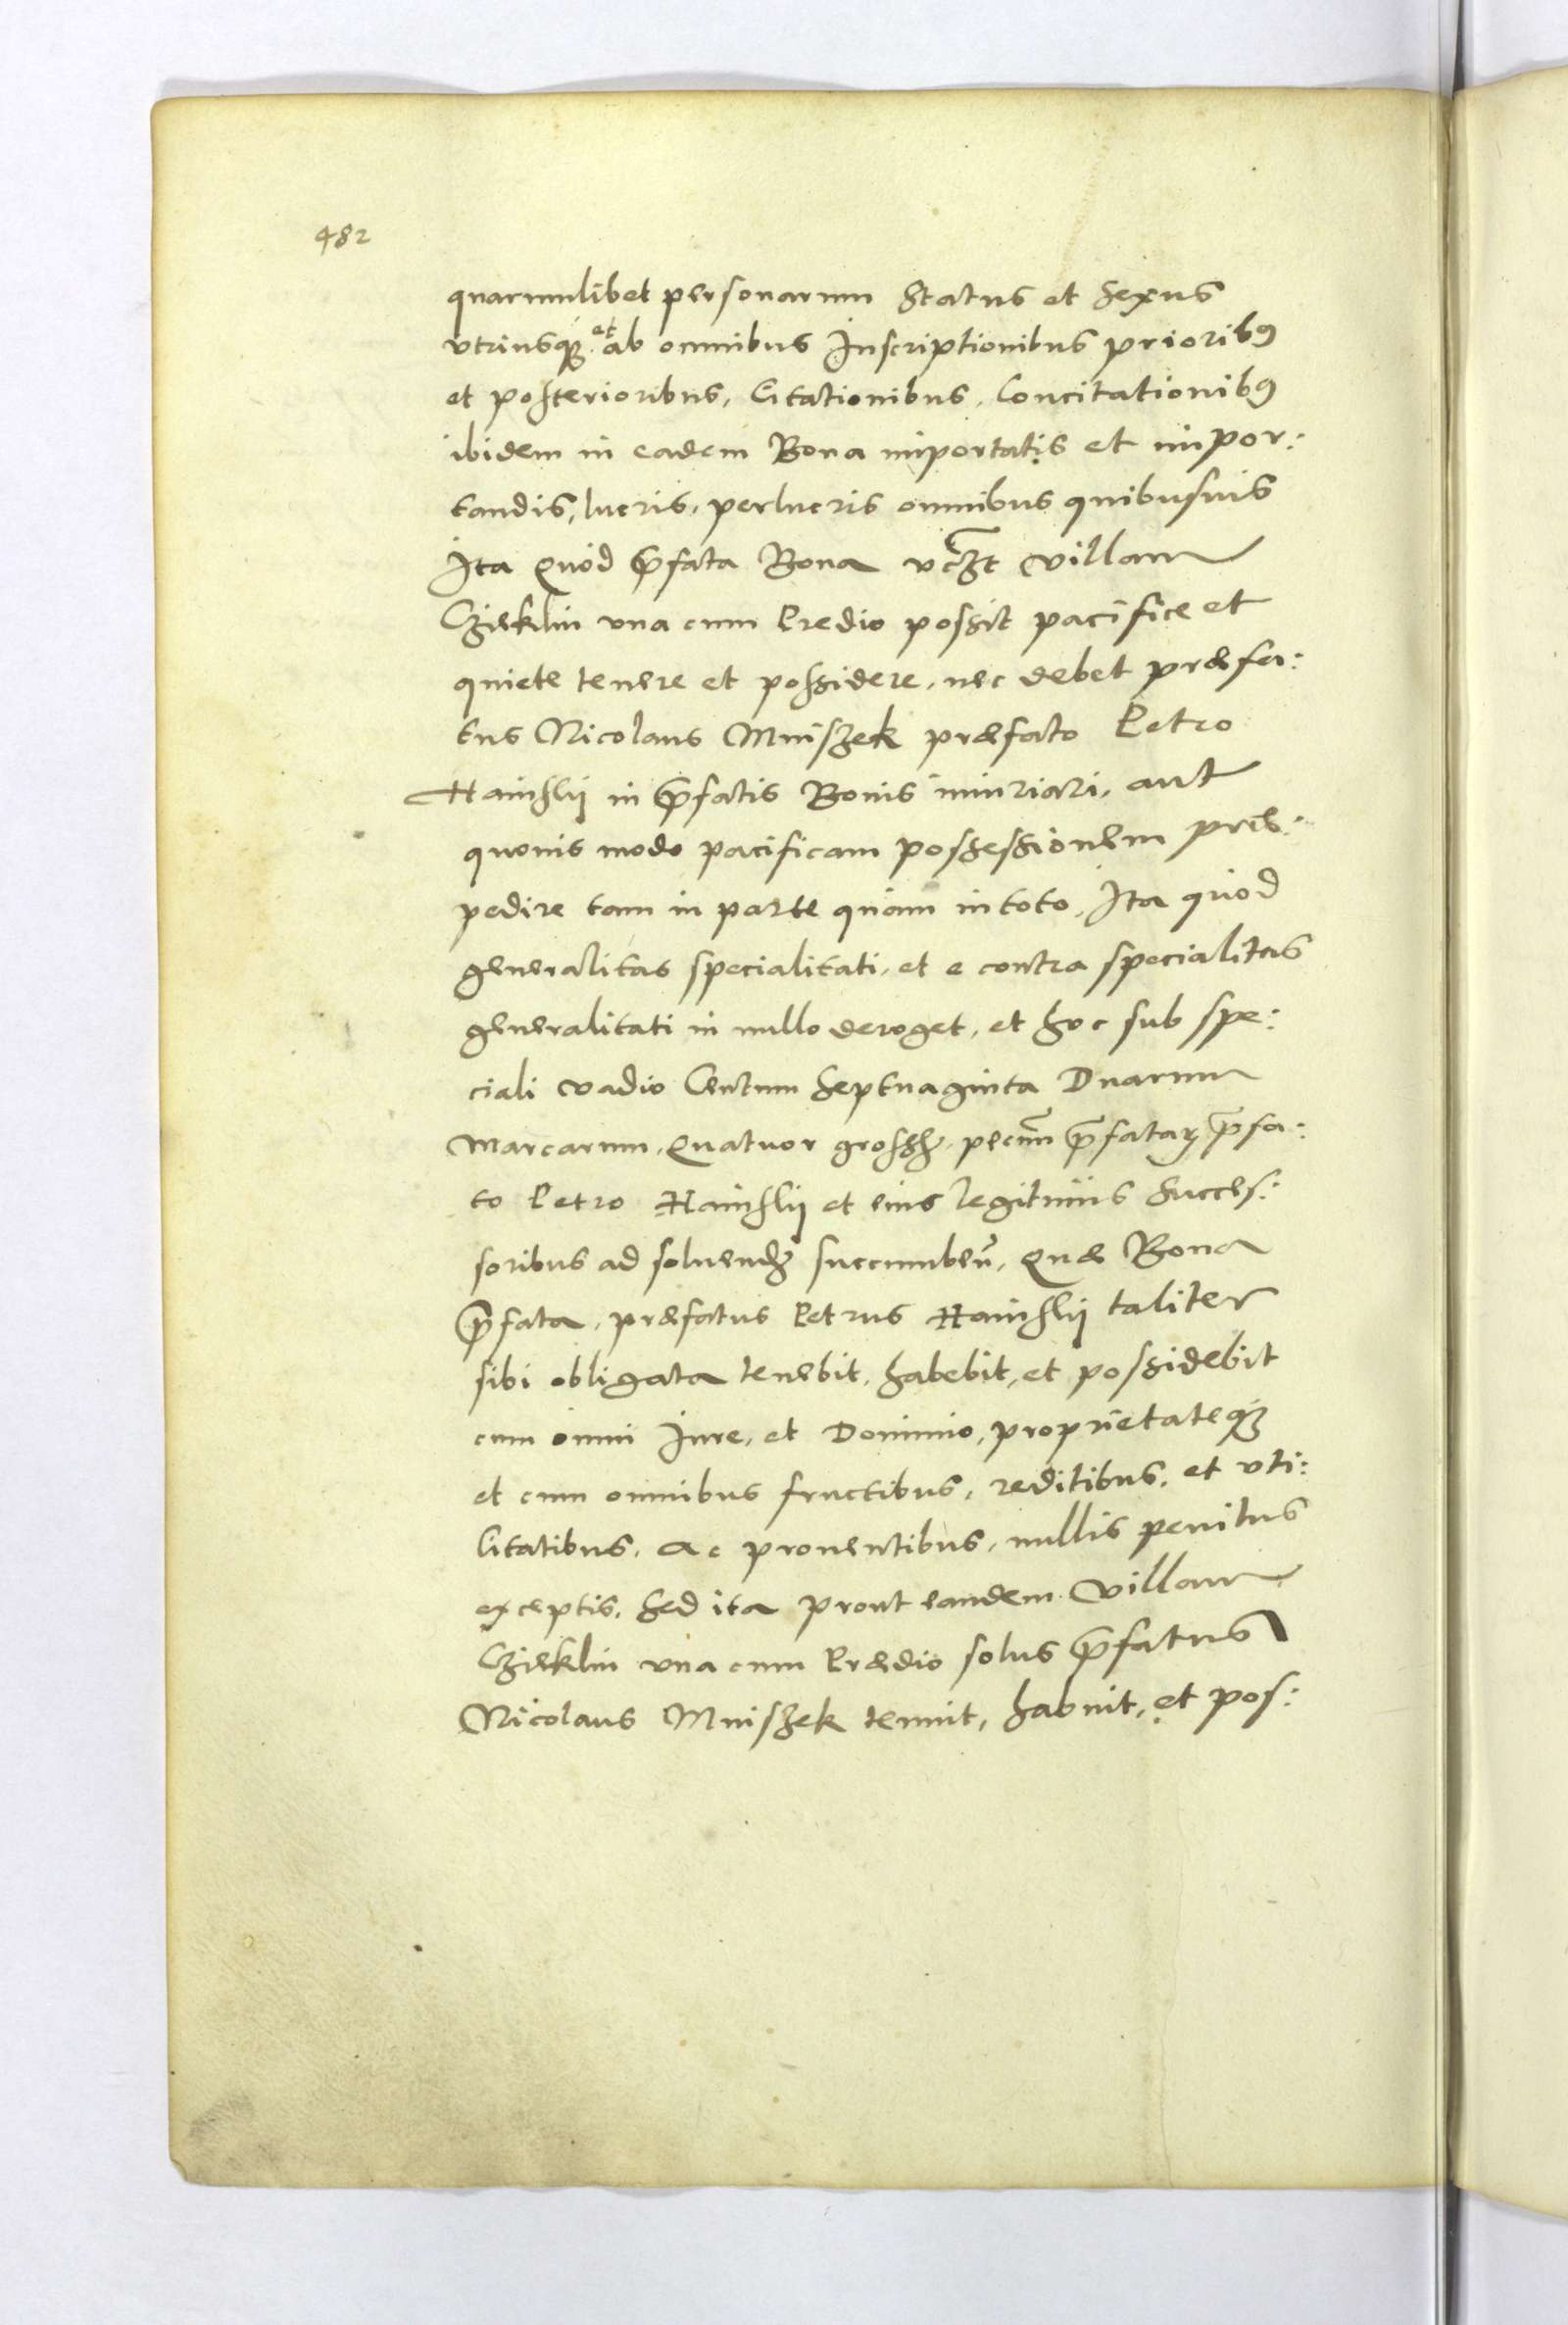 482
quarumlibet personarum Status et Sexus
vtriusq3. et ab omnibus Inscriptionibus priorib9
et posterioribus, Citationibus, Concitationib9
ibidem in eadem Bona importatis et impor:
tandis, lucris, perlucris omnibus quibusuis
Ita Quod p̄fata Bona vc̄zt villam
Cziêklin vna cum Predio possit pacifice et
quiete tenere et possidere, nec debet præfa:
tus Nicolaus Mniszek præfato Petro
Hainslij in p̄fatis Bonis iniuriari, aut
quouis modo pacificam possessionem præ:
pedire tam in parte quàm in toto, Ita quòd
generalitas specialitati, et e contra specialitas
generalitati in nullo deroget, et hoc sub spe:
ciali vadio Centum Septuaginta Duarum
Marcarum, Quatuor grossȝ, pecun̄ p̄fataꝝ p̄fa:
to Petro Hainslij et eius legitimis Succes:
soribus ad soluendȝ succumben̄, Quæ Bona
p̄fata, præfatus Petrus Hainslij taliter
sibi obligata tenebit, habebit, et possidebit
cum omni Iure, et Dominio, proprietateq3
et cum omnibus fructibus, reditibus, et vti:
litatibus, ac prouentibus, nullis penitus
exceptis, Sed ita prout eandem villam
Cziêklin vna cum Prædio solus p̄fatus
Nicolaus Mniszek tenuit, habuit, et pos: